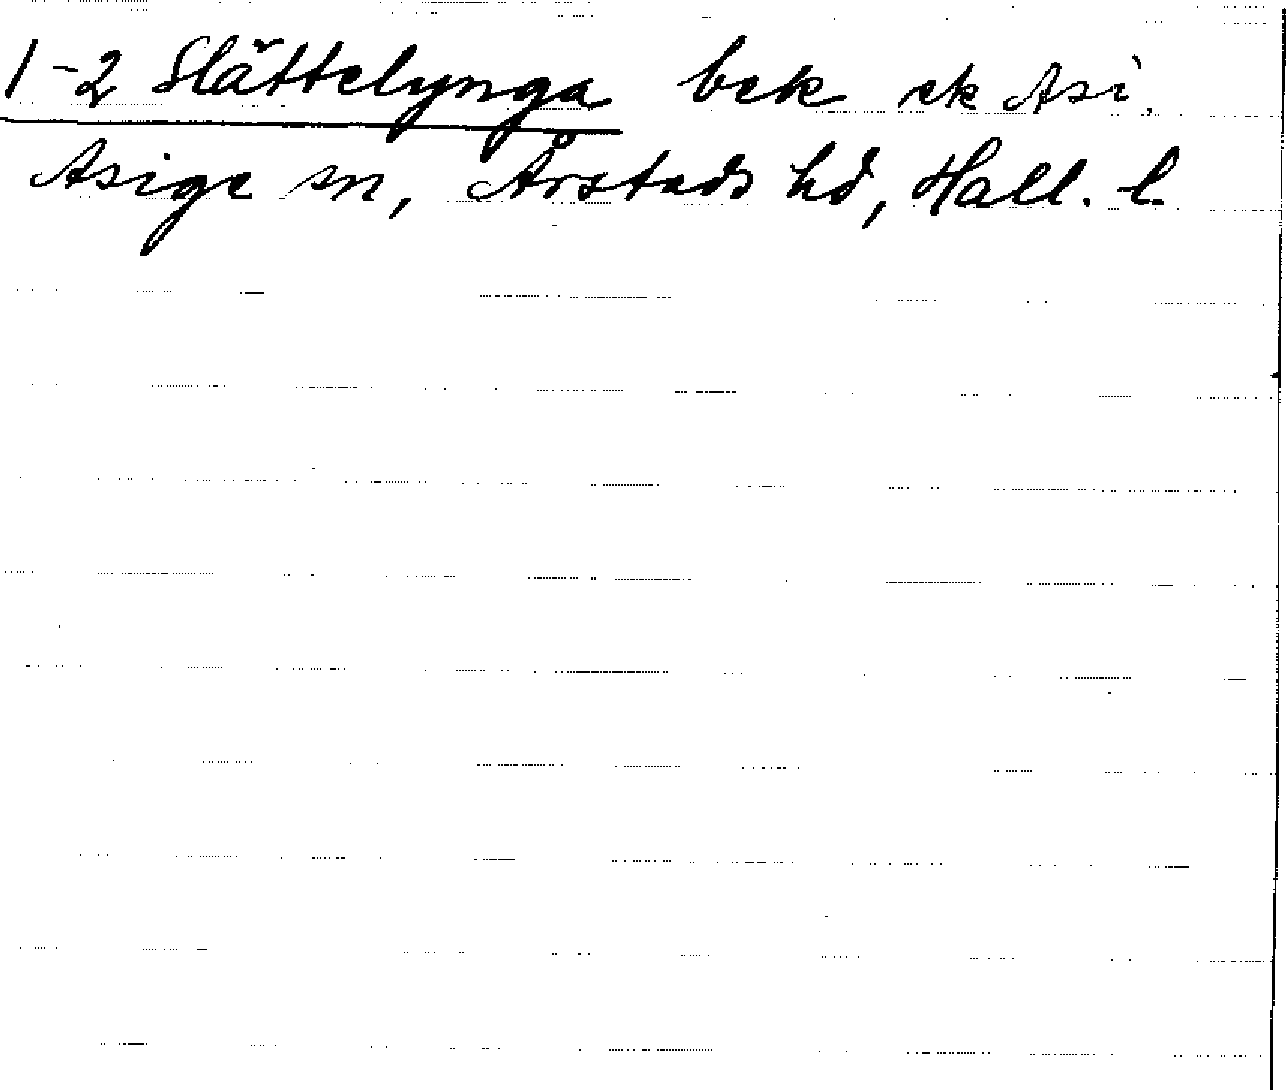 1-2 Slättelynga bek ek Asi.
Asige sn, Årstads hd, Hall. l.